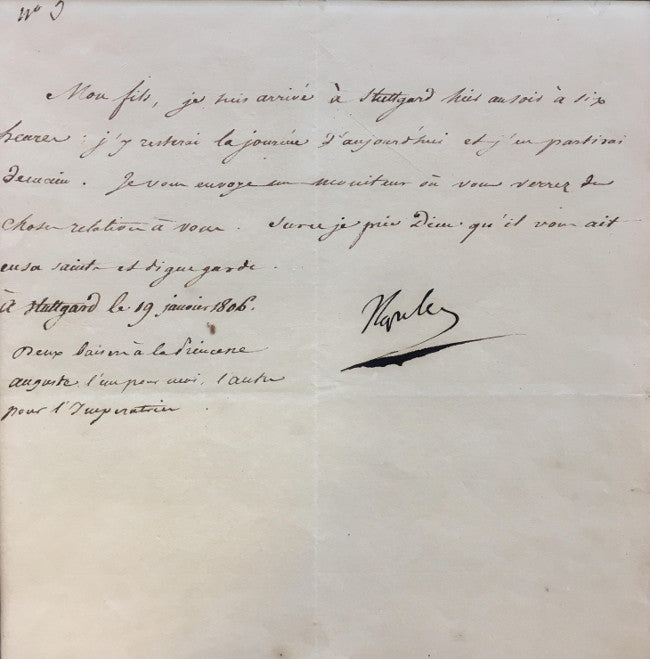 Nº 3
Mon fils, je suis arrivé à Stuttgard hier au soir à six
heures. j'y resterai la journée d'aujourd'hui et j'en partirai
demain. Je vous envoye un moniteur où vous verrez des
choses relatives à vous. Sur ce je prie Dieu qu'il vous ait
en sa sainte et digne garde.
à Stuttgard le 19 janvier 1806.
Napole
Deux baisers à la Princesse
auguste l'un pour moi, l'autre
pour l'Imperatrice